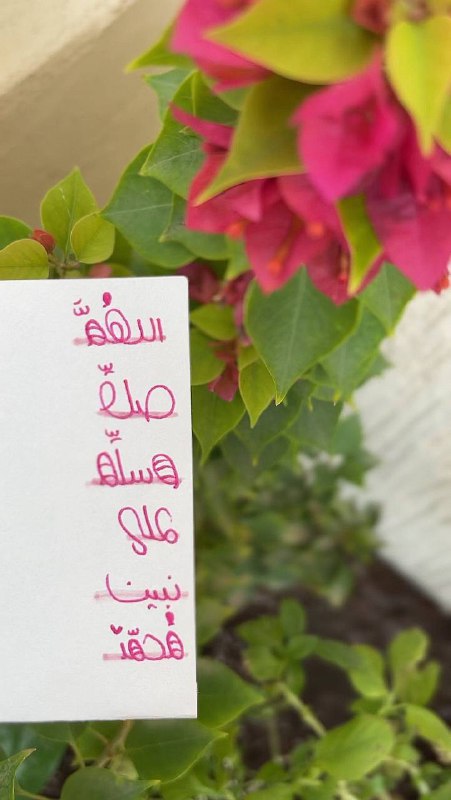 اللهُمَّ
صلِّ
وسلِّم
على
نبينا
مُحمّد